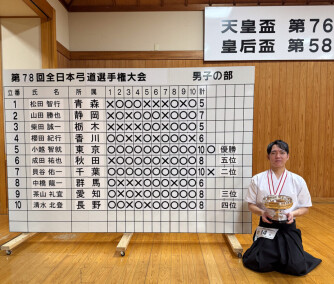 天皇盃 第76
皇后盃 第58
第78回全日本弓道選手権大会 男子の部
立番 氏名 1 2 3 4 5 6 7 8 9 10 計
1 松田 智行 青森 5
2 山田 勝也 静岡 7
3 柴田 誠一 栃木 5
4 櫻田 紀行 香川 7
5 小越 智就 東京 10 優勝
6 成田 祐也 秋田 8 五位
7 貝谷 佑一 千葉 10 二位
8 中橋 龍一 群馬 8
9 茶山 礼宜 愛知 8 三位
10 清水 北登 長野 8 四位